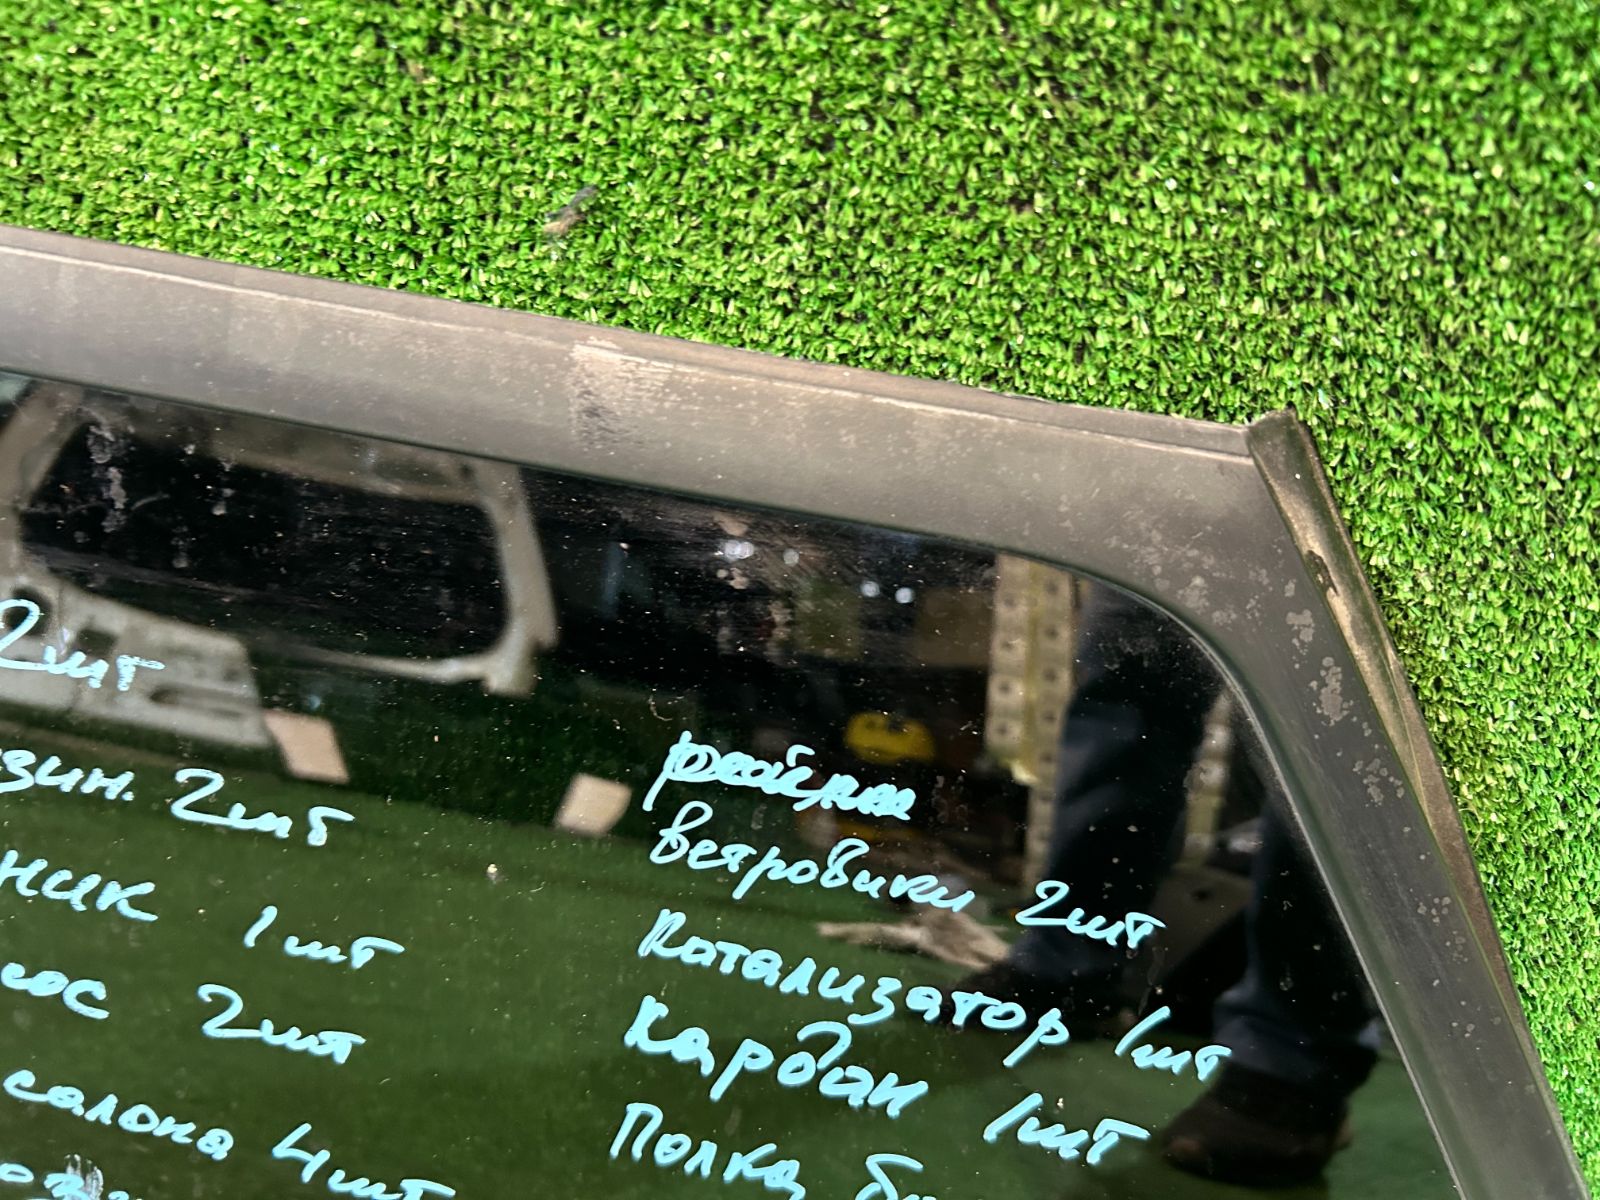 2шт
зин. 2шт
ник 1шт
сос 2шт
салона 4шт
ветровики 2шт
Катализатор 1шт
Кардан 1шт
Полка б